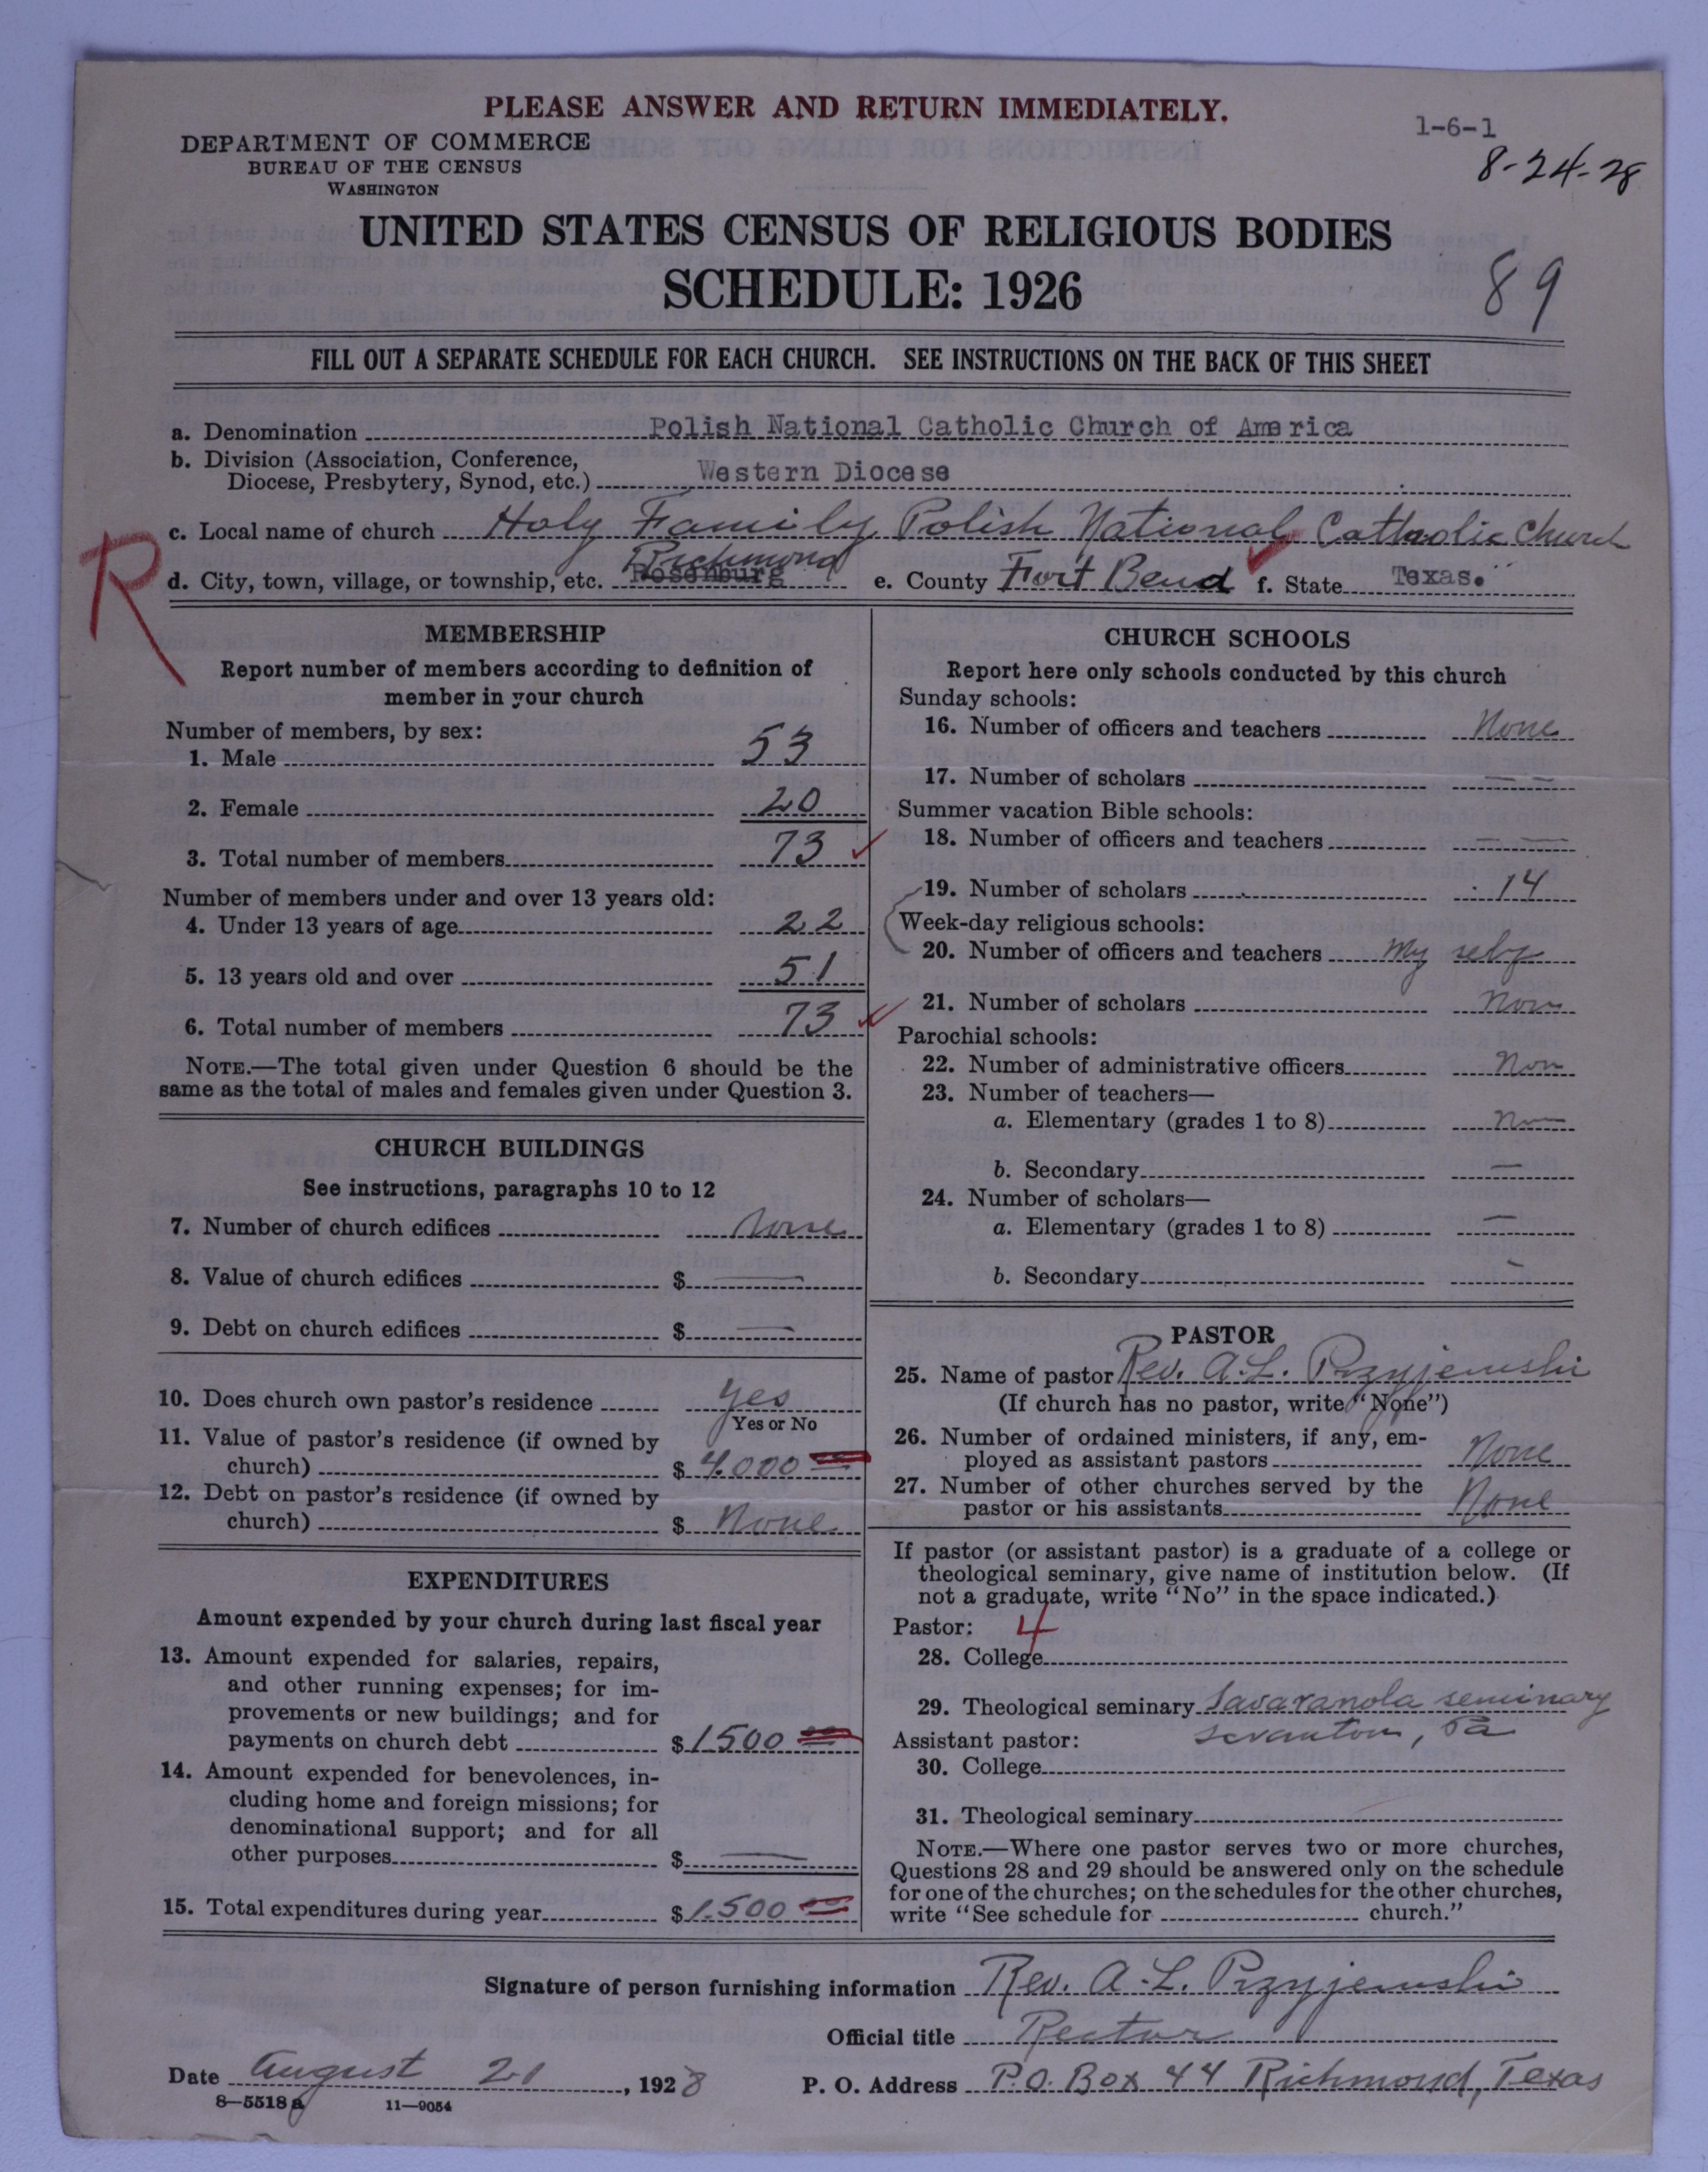 PLEASE ANSWER AND RETURN IMMEDIATELY.
1-6-1
DEPARTMENT OF COMMERCE
BUREAU OF THE CENSUS
WASHINGTON
8-24-28
UNITED STATES CENSUS OF RELIGIOUS BODIES
SCHEDULE: 1926
89
FILL OUT A SEPARATE SCHEDULE FOR EACH CHURCH. SEE INSTRUCTIONS ON THE BACK OF THIS SHEET
a. Denomination Polish National Catholic Church of America
b. Division (Association, Conference,
Diocese, Presbytery, Synod, etc.) Western Diocese
c. Local name of church Holy Family Polish National Catholic Church
R
Richmond
d. City, town, village, or township, etc. Rosenburg e. County Fort Bend f. State Texas.
MEMBERSHIP
Report number of members according to definition of
member in your church
Number of members, by sex:
1. Male 53
2. Female 20
3. Total number of members 73
Number of members under and over 13 years old:
4. Under 13 years of age 22
5. 13 years old and over 51
6. Total number of members 73
NOTE.—The total given under Question 6 should be the
same as the total of males and females given under Question 3.
CHURCH BUILDINGS
See instructions, paragraphs 10 to 12
7. Number of church edifices None
8. Value of church edifices $ —
9. Debt on church edifices $ —
10. Does church own pastor's residence Yes
Yes or No
11. Value of pastor's residence (if owned by
church) $ 4.000
12. Debt on pastor's residence (if owned by
church) $ None
EXPENDITURES
Amount expended by your church during last fiscal year
13. Amount expended for salaries, repairs,
and other running expenses; for im-
provements or new buildings; and for
payments on church debt $ 1500
14. Amount expended for benevolences, in-
cluding home and foreign missions; for
denominational support; and for all
other purposes $ —
15. Total expenditures during year $ 1.500
CHURCH SCHOOLS
Report here only schools conducted by this church
Sunday schools:
16. Number of officers and teachers None
17. Number of scholars — —
Summer vacation Bible schools:
18. Number of officers and teachers — —
19. Number of scholars 14
Week-day religious schools:
20. Number of officers and teachers My self
21. Number of scholars Non
Parochial schools:
22. Number of administrative officers Non
23. Number of teachers—
a. Elementary (grades 1 to 8) No
b. Secondary —
24. Number of scholars—
a. Elementary (grades 1 to 8) —
b. Secondary —
PASTOR
25. Name of pastor Rev. A.L. Przyjemski
(If church has no pastor, write "None")
26. Number of ordained ministers, if any, em-
ployed as assistant pastors None
27. Number of other churches served by the
pastor or his assistants None
If pastor (or assistant pastor) is a graduate of a college or
theological seminary, give name of institution below. (If
not a graduate, write "No" in the space indicated.)
Pastor: 4
28. College
29. Theological seminary Savaranola seminary
Assistant pastor: Scranton, Pa
30. College
31. Theological seminary
NOTE.—Where one pastor serves two or more churches,
Questions 28 and 29 should be answered only on the schedule
for one of the churches; on the schedules for the other churches,
write "See schedule for church."
Signature of person furnishing information Rev. A.L. Przyjemski
Official title Rector
Date August 21, 1928 P. O. Address P.O. Box 44 Richmond, Texas
8—5518 a 11—9054